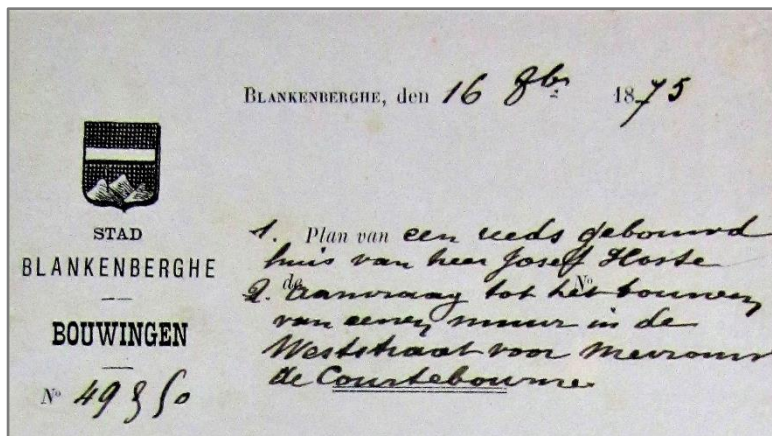 BLANKENBERGHE, den 16 8br 1875
STAD
BLANKENBERGHE
BOUWINGEN
No 49 & 50
1. Plan van een reeds gebouwd
huis van heer Josef Hoste
de No
2. Aanvraag tot het bouwen
van eenen muur in de
Weststraat voor Mevrouw
de Courtebourne